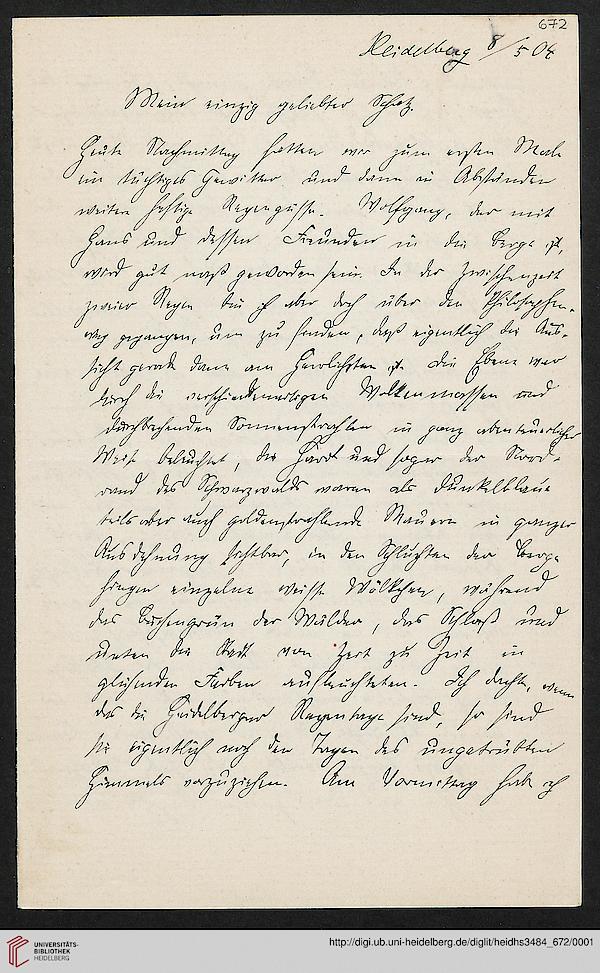 672
Heidelberg 8/5 04
Mein einzig geliebter Schatz.
Heute Nachmittag hatten wir zum ersten Male
ein tüchtiges Gewitter und dann in Abständen
weitere heftige Regengüsse. Wolfgang, der mit
Hans und dessen Freunden in die Berge ist,
wird gut naß geworden sein. In der Zwischenzeit
zweier Regen bin ich aber doch über den Philosophen-
weg gegangen, um zu finden, daß eigentlich die Aus-
sicht gerade dann am herrlichsten ist. Die Ebene war
durch die verschiedenartigen Wolkenmassen und
durchbrechenden Sonnenstrahlen in ganz abenteuerlicher
Weise beleuchtet, die Hardt und sogar der Nord-
rand des Schwarzwalds waren als dunkelblaue
teils aber auch goldenstrahlende Mauern in ganzer
Ausdehnung sichtbar, in den Schluchten der Berge
hingen einzelne weiße Wölkchen, während
das Buchengrün der Wälder, das Schloß und
unten die Stadt von Zeit zu Zeit in
glühenden Farben aufleuchteten. Ich dachte, wenn
das die Heidelberger Regentage sind, so sind
sie eigentlich noch den Tagen des ungetrübten
Himmels vorzuziehen. Am Vormittag habe ich
UNIVERSITÄTS-
BIBLIOTHEK
HEIDELBERG
http://digi.ub.uni-heidelberg.de/diglit/heidhs3484_672/0001